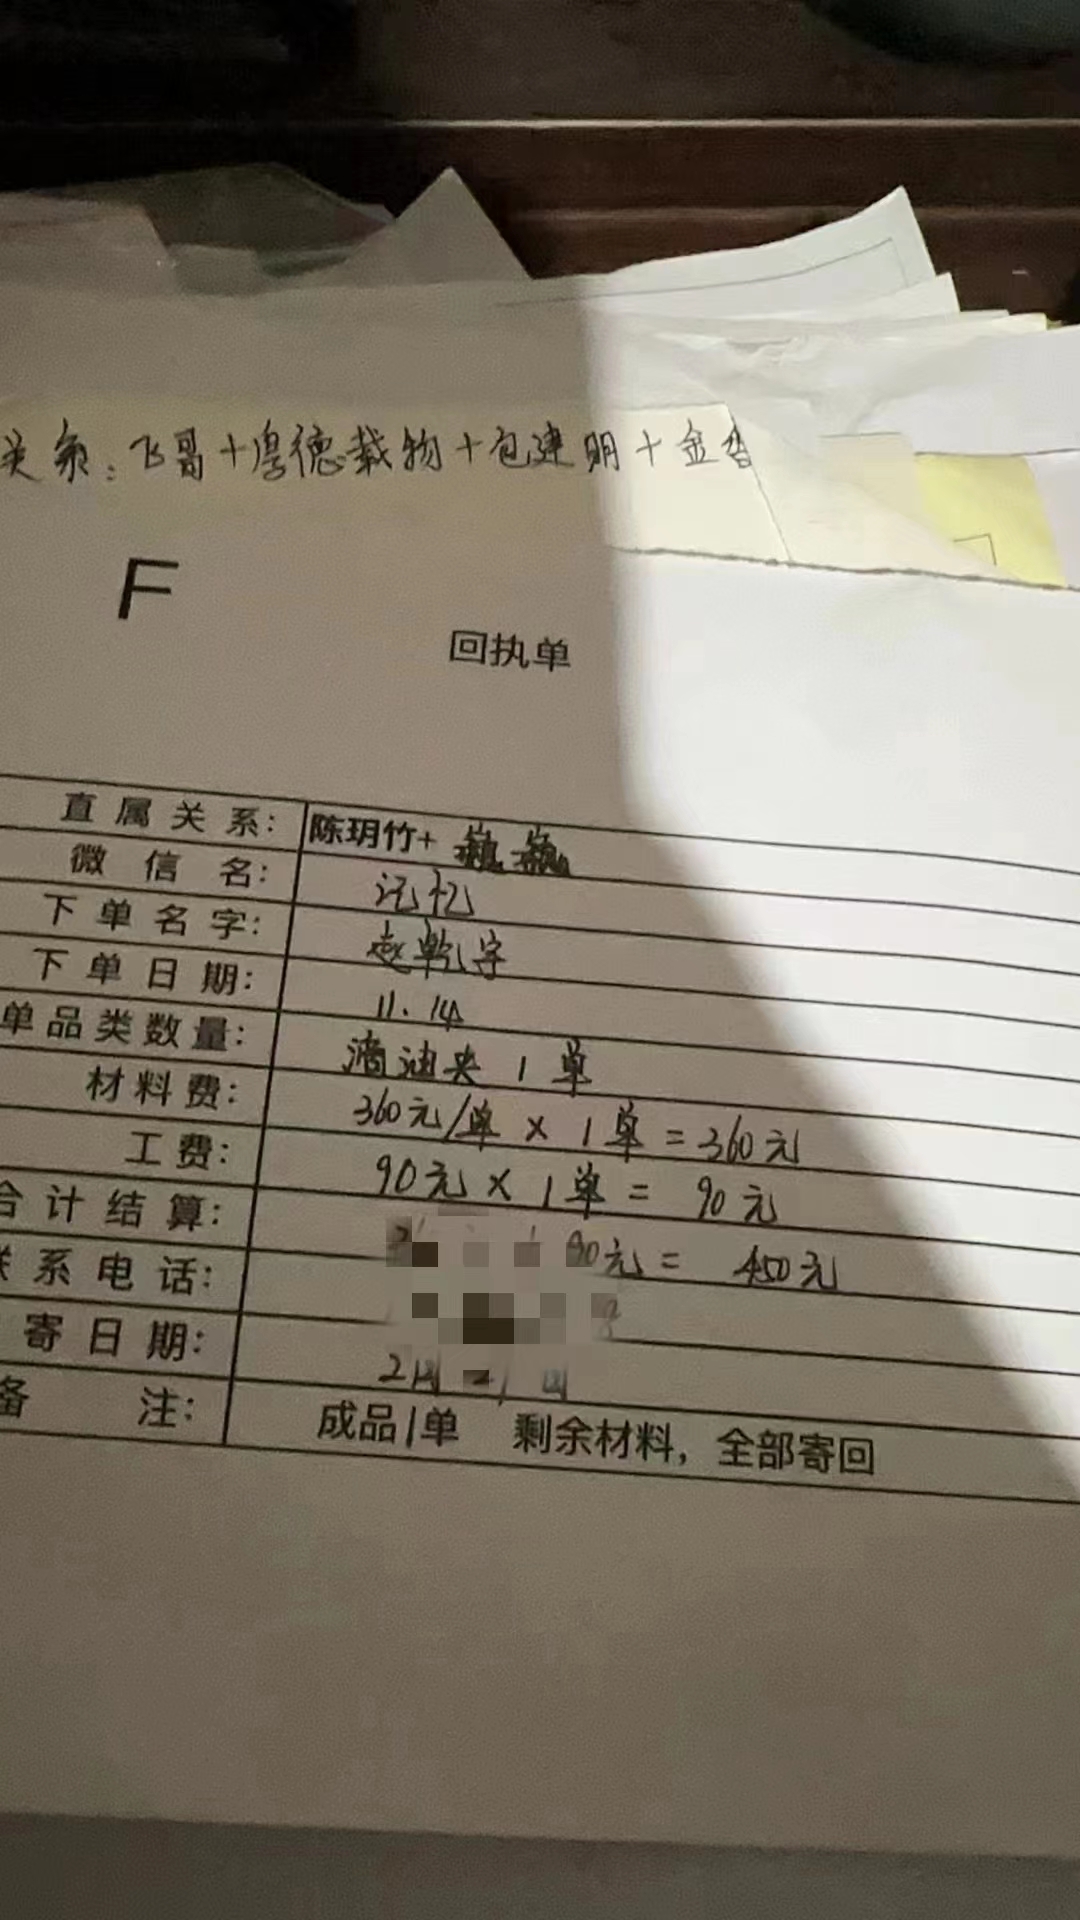 关系:飞哥+厚德载物+包建明+金香
F
回执单
直属关系: 陈玥竹+巍巍
微信名: 记忆
下单名字: 赵乾宇
下单日期: 11.14
单品类数量: 滴油夹1单
材料费: 360元/单×1单=360元
工费: 90元×1单=90元
合计结算: 90元=450元
联系电话:
寄日期:
备注: 成品1单 剩余材料,全部寄回